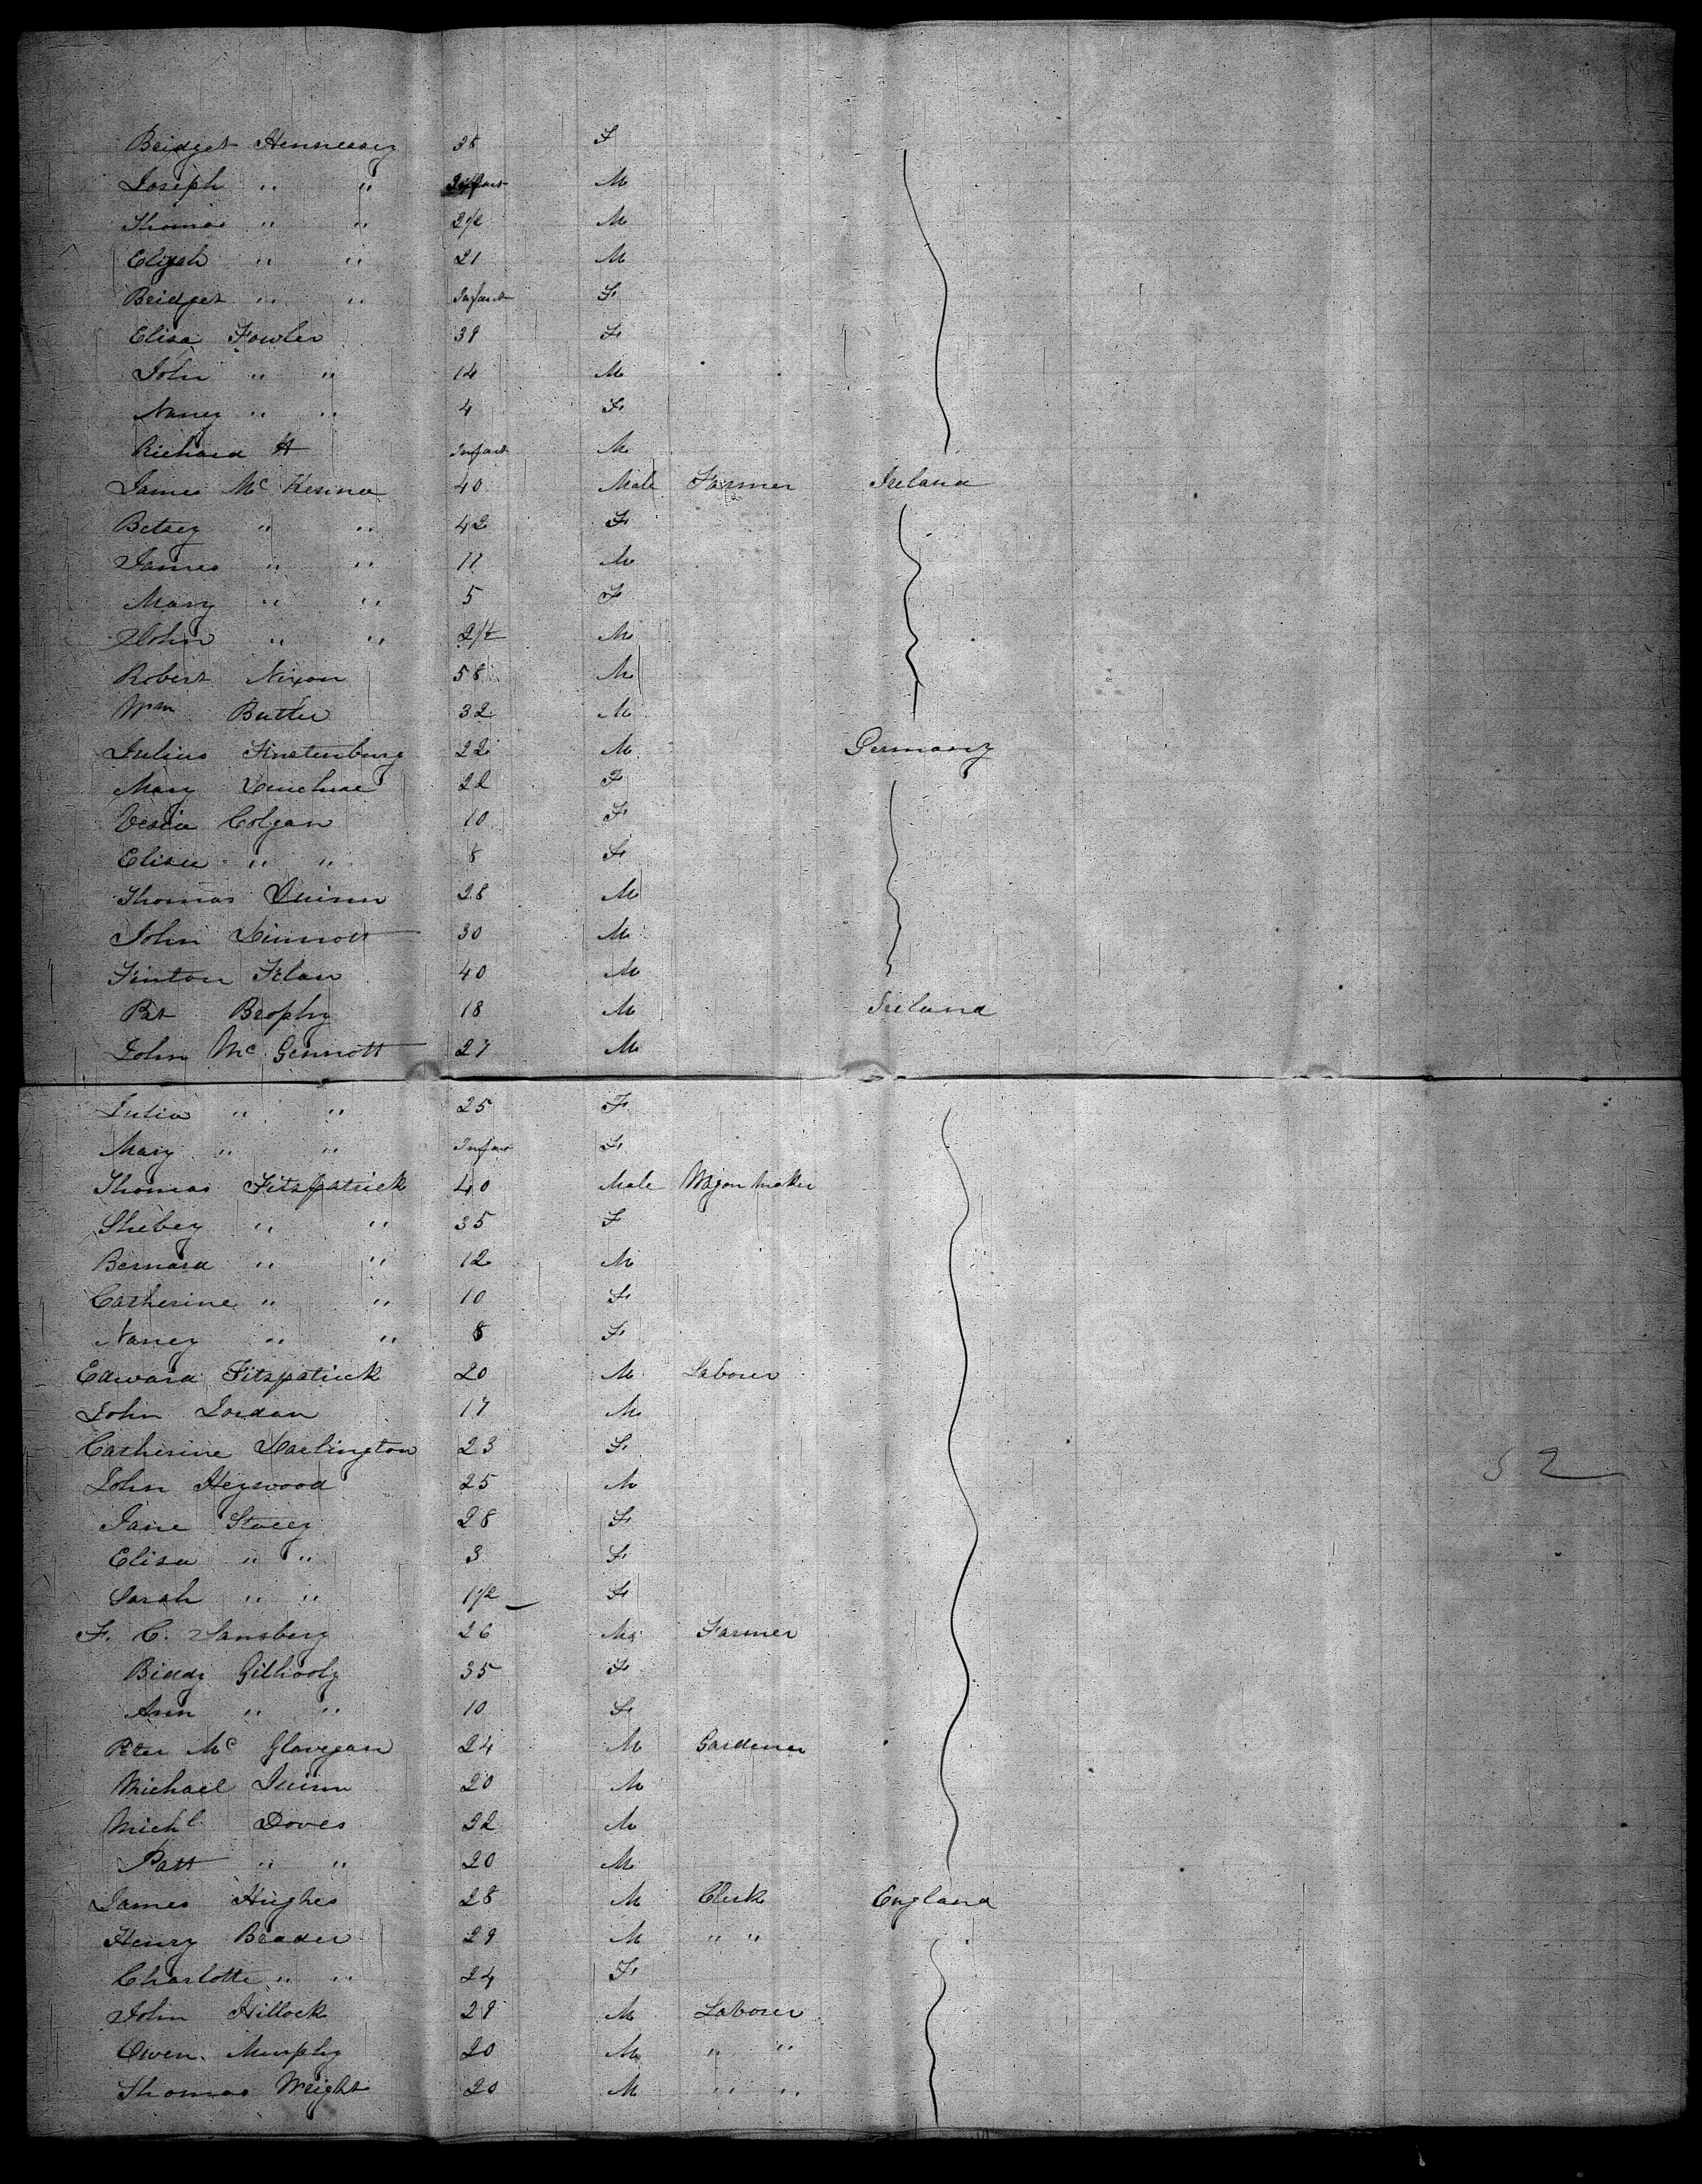 Bridget Hennessey 38 F
Joseph " " Infant M
Thomas " " 2 1/2 M
Elijah " " 21 M
Bridget " " Infant F
Elisa Fowler 39 F
John " " 14 M
Nancy " " 4 F
Richard H Infant M
James Mc Kenna 40 Male Farmer Ireland
Betsey " " 42 F
James " " 11 M
Mary " " 5 F
John " " M
Robert Nixon 58 M
Wm Butler 32 M
Julius 22 M Germany
Mary 22 F
Colgan 10 F
Elisa " " 8 F
Thomas Quinn 28 M
John Dinnott 30 M
Finton Felan 40 M
Pat Brophy 18 M Ireland
John Mc Gennott 27 M
Julia " " 25 F
Mary " " Infant F
Thomas Fitzpatrick 40 Male Wagon maker
" " 35 F
Bernard " " 12 M
Catherine " " 10 F
Nancy " " 8 F
Edward Fitzpatrick 20 M Laborer
John Jordan 17 M
Catherine Darlington 23 F
John Heywood 25 M
Jane Stacey 28 F
Elisa " " 3 F
Sarah " " 1 1/2 F
F. C. Sansbery 26 M Farmer
Biddy Gilhooly 35 F
Ann " " 10 F
Peter Mc Glavegan 24 M Gardener
Michael Quinn 20 M
Michl Doves 22 M
Patt " " 20 M
James Hughes 28 M Clerk England
Henry Brader 29 M " "
Charlotte " " 24 F
John Hillock 29 M Laborer
Owen Murphy 20 M " "
Thomas Wright 20 M " "
52